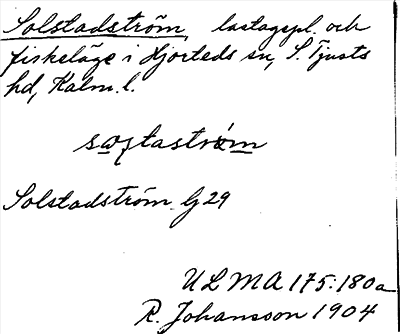 Solstadström, lastagepl. och
fiskeläge i Hjorteds sn, S. Tjusts
hd, Kalm. l.
Solstadström Gj 29
ULMA 175:180a
R. Johansson 1904